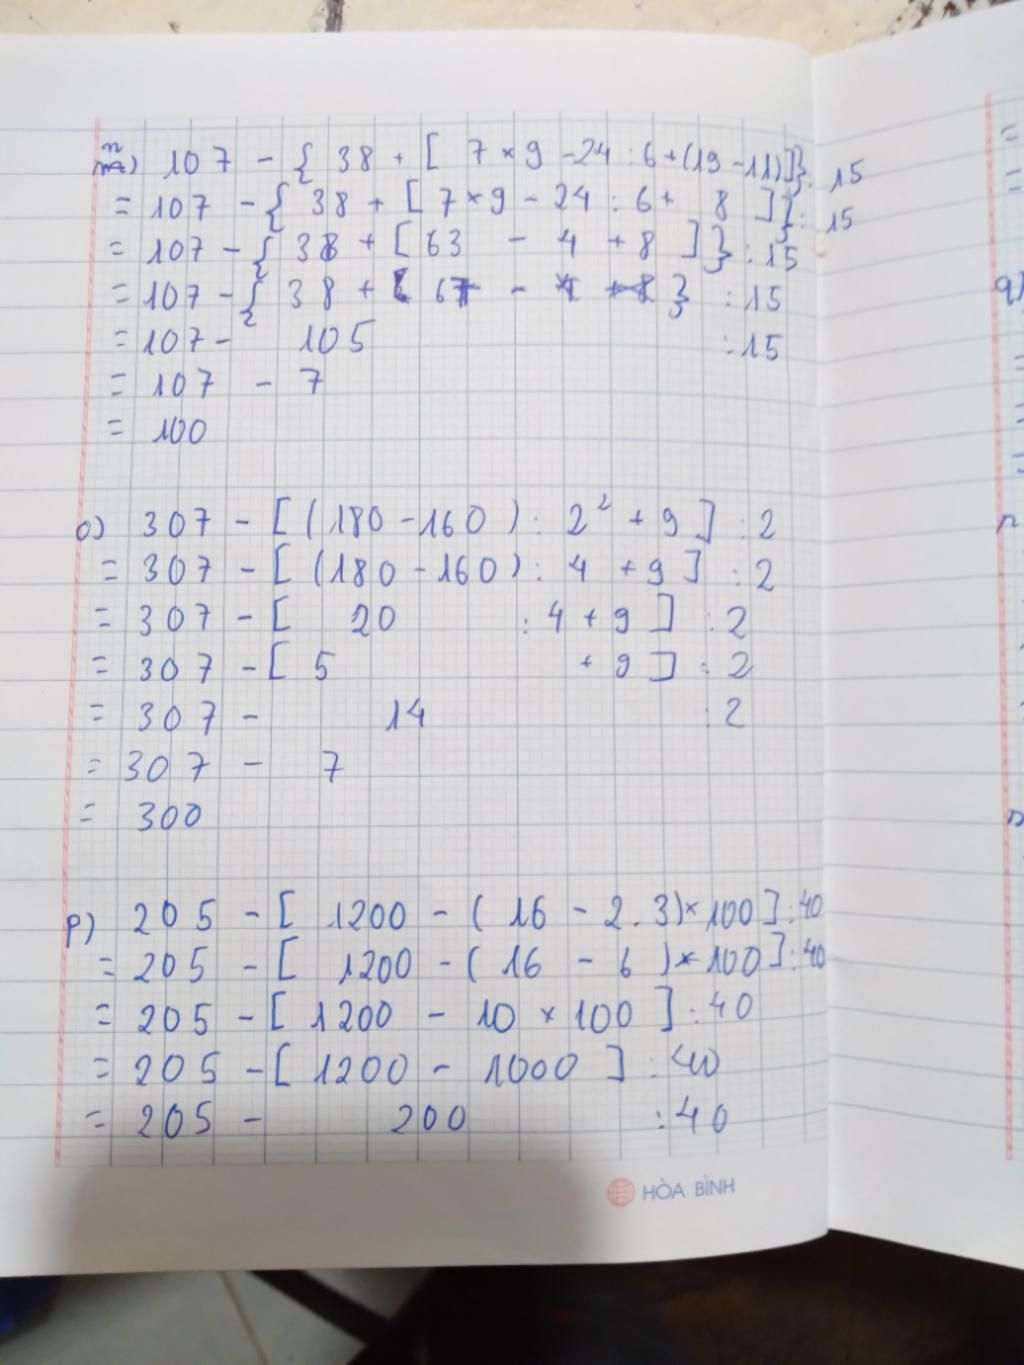 n) 107 - { 38 + [ 7 × 9 - 24 : 6 + (19 - 11)]} : 15
= 107 - { 38 + [ 7 × 9 - 24 : 6 + 8 ]} : 15
= 107 - { 38 + [ 63 - 4 + 8 ]} : 15
= 107 - { 38 + 67 } : 15
= 107 - 105 : 15
= 107 - 7
= 100
o) 307 - [ (180 - 160) : 2² + 9 ] : 2
= 307 - [ (180 - 160) : 4 + 9 ] : 2
= 307 - [ 20 : 4 + 9 ] : 2
= 307 - [ 5 + 9 ] : 2
= 307 - 14 : 2
= 307 - 7
= 300
p) 205 - [ 1200 - ( 16 - 2 . 3) × 100 ] : 40
= 205 - [ 1200 - ( 16 - 6 ) × 100 ] : 40
= 205 - [ 1200 - 10 × 100 ] : 40
= 205 - [ 1200 - 1000 ] : 40
= 205 - 200 : 40
HÒA BÌNH
q)